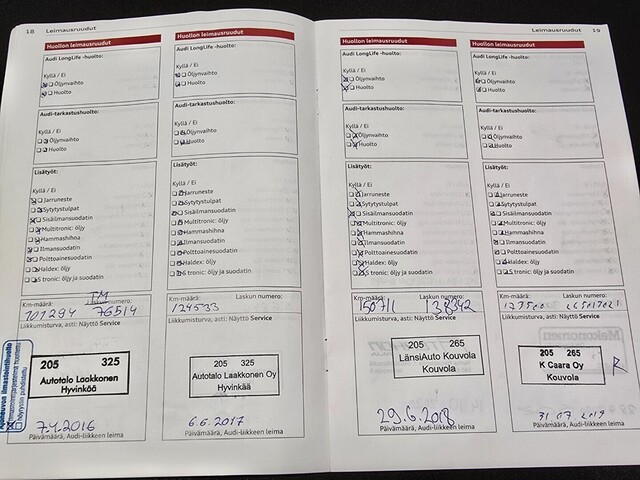 18 Leimausruudut
Huollon leimausruudut
Audi LongLife -huolto:
Kyllä / Ei
Öljynvaihto
Huolto
Audi-tarkastushuolto:
Kyllä / Ei
Öljynvaihto
Huolto
Lisätyöt:
Kyllä / Ei
Jarruneste
Sytytystulpat
Sisäilmansuodatin
Multitronic: öljy
Hammashihna
Ilmansuodatin
Polttoainesuodatin
Haldex: öljy
S tronic: öljy ja suodatin
Km-määrä: numero:
101294 76514
Liikkumisturva, asti: Näyttö Service
205 325
Autotalo Laakkonen
Hyvinkää
7.4.2016
Päivämäärä, Audi-liikkeen leima
Huollon leimausruudut
Audi LongLife -huolto:
Kyllä / Ei
Öljynvaihto
Huolto
Audi-tarkastushuolto:
Kyllä / Ei
Öljynvaihto
Huolto
Lisätyöt:
Kyllä / Ei
Jarruneste
Sytytystulpat
Sisäilmansuodatin
Multitronic: öljy
Hammashihna
Ilmansuodatin
Polttoainesuodatin
Haldex: öljy
S tronic: öljy ja suodatin
Km-määrä: Laskun numero:
124533
Liikkumisturva, asti: Näyttö Service
205 325
Autotalo Laakkonen Oy
Hyvinkää
6.6.2017
Päivämäärä, Audi-liikkeen leima
Leimausruudut 19
Huollon leimausruudut
Audi LongLife -huolto:
Kyllä / Ei
Öljynvaihto
Huolto
Audi-tarkastushuolto:
Kyllä / Ei
Öljynvaihto
Huolto
Lisätyöt:
Kyllä / Ei
Jarruneste
Sytytystulpat
Sisäilmansuodatin
Multitronic: öljy
Hammashihna
Ilmansuodatin
Polttoainesuodatin
Haldex: öljy
S tronic: öljy ja suodatin
Km-määrä: Laskun numero:
150711 138342
Liikkumisturva, asti: Näyttö Service
205 265
LänsiAuto Kouvola
Kouvola
29.6.2018
Päivämäärä, Audi-liikkeen leima
Huollon leimausruudut
Audi LongLife -huolto:
Kyllä / Ei
Öljynvaihto
Huolto
Audi-tarkastushuolto:
Kyllä / Ei
Öljynvaihto
Huolto
Lisätyöt:
Kyllä / Ei
Jarruneste
Sytytystulpat
Sisäilmansuodatin
Multitronic: öljy
Hammashihna
Ilmansuodatin
Polttoainesuodatin
Haldex: öljy
S tronic: öljy ja suodatin
Km-määrä: Laskun numero:
Liikkumisturva, asti: Näyttö Service
205 265
K Caara Oy
Kouvola
31 07 2019
Päivämäärä, Audi-liikkeen leima